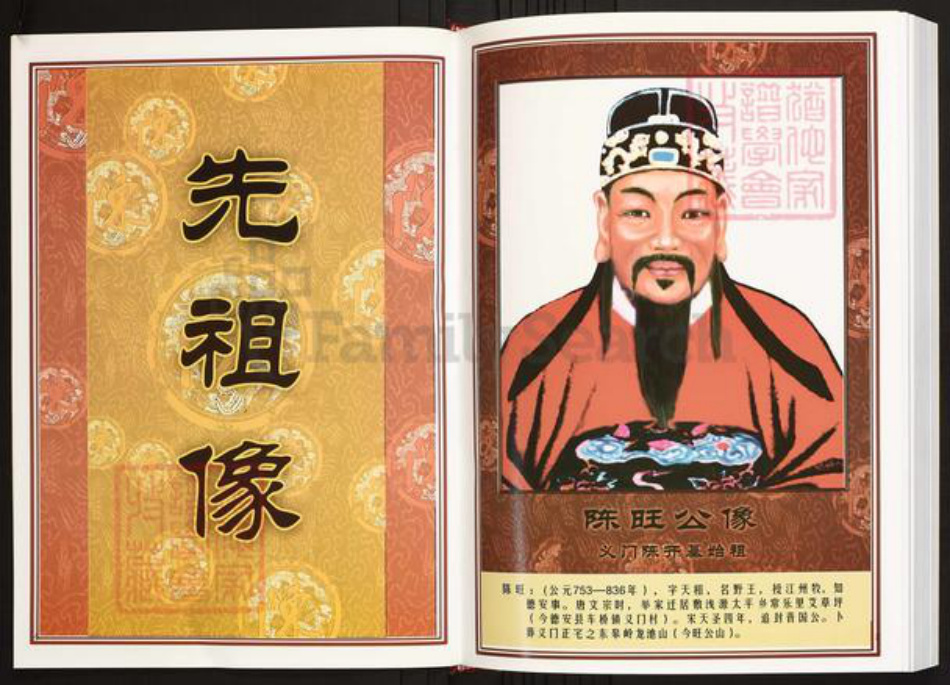 先祖像
FamilySearch
猶他家
譜學會
陈旺公像
义门陈开基始祖
陈旺：（公元753—836年），字天相，名野王，授江州牧，知
德安事。唐文宗时，举家迁居敷浅源太平乡常乐里艾草坪
（今德安县车桥镇义门村）。宋天圣四年，追封晋国公。卜
葬义门正宅之东皋岭龙池山（今旺公山）。